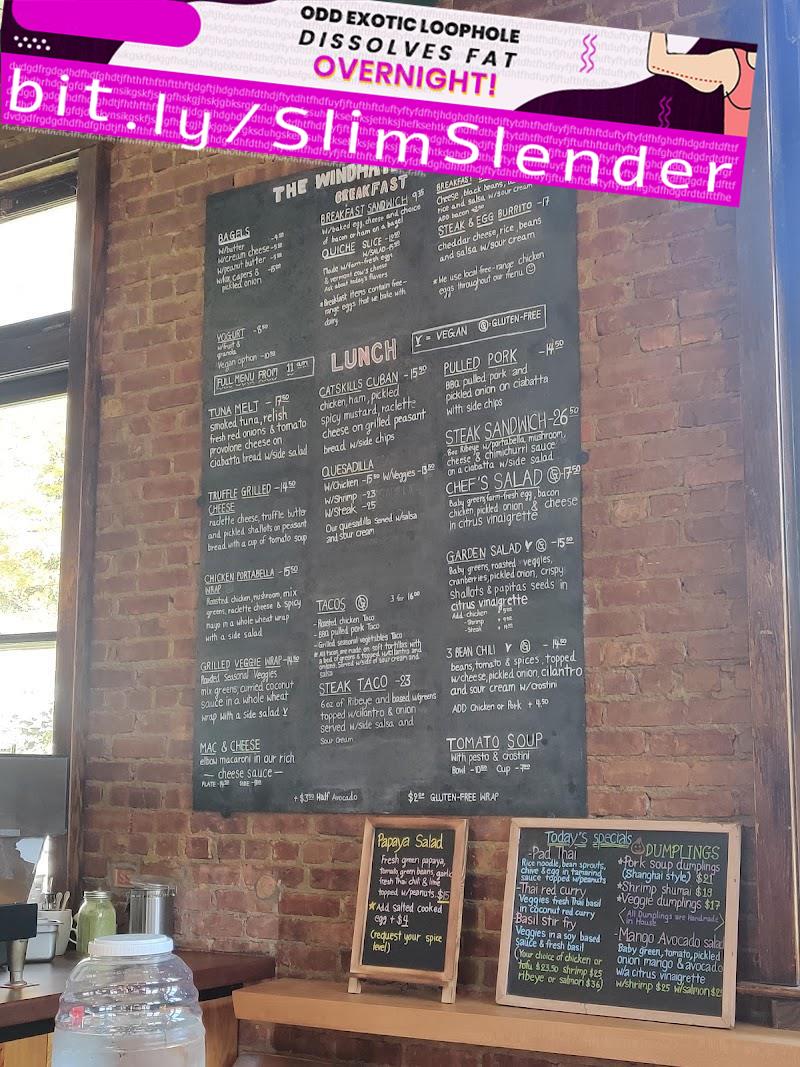 ODD EXOTIC LOOPHOLE
DISSOLVES FAT
OVERNIGHT!
bit.ly/SlimSlender
THE
BREAKFAST
BAGELS
w/butter
w/cream cheese
w/peanut butter
w/lox, capers &
pickled onion
YOGURT
w/fruit &
granola
Vegan option
FULL MENU FROM 11 am
BREAKFAST SANDWICH
W/baked egg, cheese and choice
of bacon or ham on a bagel
QUICHE SLICE
W/SALAD
Made w/farm-fresh eggs
& vermont cow's cheese
Ask about today's flavors
*Breakfast items contain free-
range eggs that we bake with
dairy
cheese, black beans,
rice and salsa w/sour cream
STEAK & EGG BURRITO -17
cheddar cheese, rice, beans
and salsa w/sour cream
*We use local free-range chicken
eggs throughout our menu ☺
LUNCH
V = VEGAN G=GLUTEN-FREE
TUNA MELT - 17.50
smoked tuna, relish
fresh red onions & tomato
provolone cheese on
ciabatta bread w/side salad
TRUFFLE GRILLED -14.50
CHEESE
raclette cheese, truffle butter
and pickled shallots on peasant
bread with a cup of tomato soup
CHICKEN PORTABELLA -15.50
WRAP
Roasted chicken, mushroom, mix
greens, raclette cheese & spicy
mayo in a whole wheat wrap
with a side salad
GRILLED VEGGIE WRAP-14.50
Roasted Seasonal Veggies
mix greens, curried coconut
sauce in a whole wheat
wrap with a side salad V
MAC & CHEESE
elbow macaroni in our rich
— cheese sauce —
CATSKILLS CUBAN - 15.50
chicken, ham, pickled
spicy mustard, raclette
cheese on grilled peasant
bread w/side chips
QUESADILLA
W/Chicken -15.50 W/Veggies
W/Shrimp -23
W/Steak -25
Our quesadilla served w/salsa
and sour cream
TACOS G 3 for 16.00
- Roasted chicken Taco
- BBQ pulled pork Taco
- Grilled seasonal vegetables Taco
* All tacos are made on soft tortillas with
a bed of greens & topped w/cilantro and
onions. Served w/side of sour cream and
salsa
STEAK TACO -23
6oz of Ribeye and based w/greens
topped w/cilantro & onion
served w/side salsa and
Sour Cream
PULLED PORK -14.50
BBQ pulled pork and
pickled onion on ciabatta
with side chips
STEAK SANDWICH-26.50
6oz Ribeye w/portabella mushroom,
cheese & chimichurri sauce
on a ciabatta w/side salad
CHEF'S SALAD G-17.50
Baby greens, farm-fresh egg, bacon
chicken, pickled onion & cheese
in citrus vinaigrette
GARDEN SALAD V G -15.50
Baby greens, roasted veggies,
cranberries, pickled onion, crispy
shallots & papitas seeds in
citrus vinaigrette
Add: chicken
- Shrimp
- Steak
3 BEAN CHILI V G - 14.50
beans, tomato & spices, topped
w/cheese, pickled onion, cilantro
and sour cream w/crostini
ADD Chicken or Pork + 4.50
TOMATO SOUP
With pesto & crostini
Bowl Cup
Half Avocado
GLUTEN-FREE WRAP
Papaya Salad
Fresh green papaya,
tomato, green beans, garlic
fresh Thai chili & lime
topped w/peanuts
*Add salted cooked
egg + $4
(request your spice
level)
Today's specials
-Pad Thai
Rice noodle, bean sprouts,
chive & egg in tamarind
sauce topped w/peanuts
-Thai red curry
Veggies fresh Thai basil
in coconut red curry
Basil stir fry
Veggies in a soy based
sauce & fresh basil
(Your choice of chicken or
tofu $23.50 shrimp $25
ribeye or salmon $36)
DUMPLINGS
*Pork soup dumplings
(Shanghai style) $21
*Shrimp shumai $19
*Veggie dumplings $17
All Dumplings are Handmade
In House
-Mango Avocado salad
Baby green, tomato, pickled
onion mango & avocado
w/a citrus vinaigrette
w/shrimp $25 w/salmon